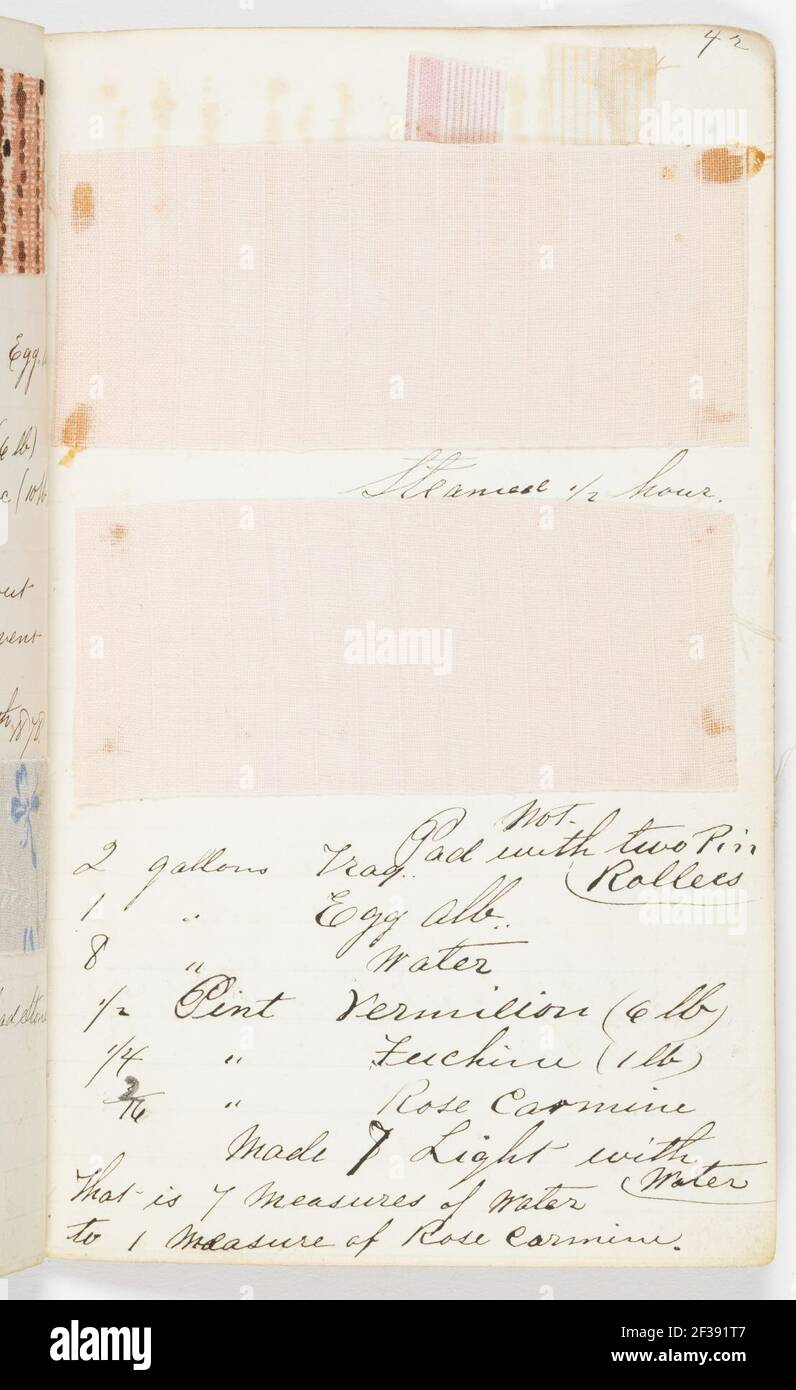 42
Egg.
(6 lb)
c (10 lb
out
went
1878.
Steamed 1/2 hour.
Not
Pad with two Pin
Rollers
2 gallons Trag.
1 " Egg alb..
8 " Water
1/2 Pint Vermilion (6 lb)
1/4 " Fuchine (1 lb)
3/16 " Rose Carmine
Made 7 Light with
Water
That is 7 Measures of Water
to 1 Measure of Rose Carmine.
alamy
alamy
alamy
alamy
Image ID: 2F391T7
www.alamy.com